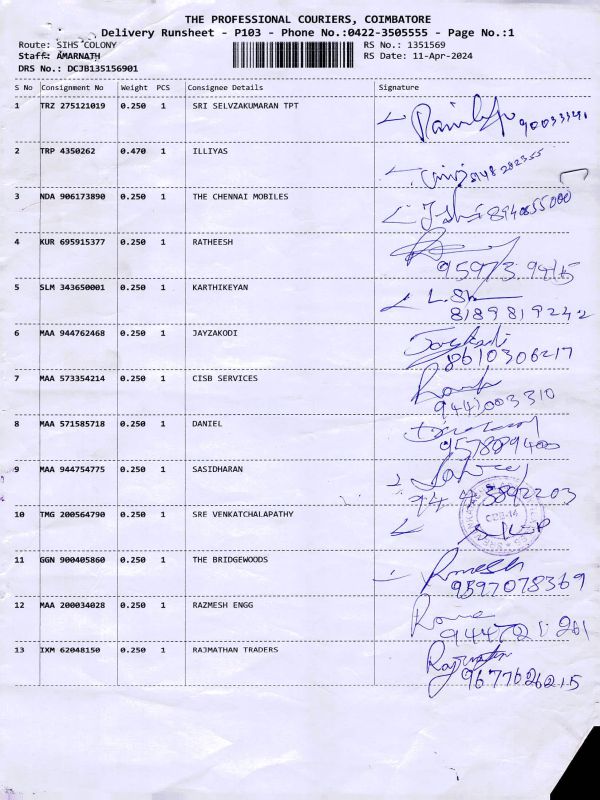 THE PROFESSIONAL COURIERS, COIMBATORE
Delivery Runsheet - P103 - Phone No.:0422-3505555 - Page No.:1
Route: SIHS COLONY RS No.: 1351569
Staff: AMARNATH RS Date: 11-Apr-2024
DRS No.: DCJB135156901
S No Consignment No Weight PCS Consignee Details Signature
1 TRZ 275121019 0.250 1 SRI SELVZAKUMARAN TPT
2 TRP 4350262 0.470 1 ILLIYAS
3 NDA 906173890 0.250 1 THE CHENNAI MOBILES
4 KUR 695915377 0.250 1 RATHEESH
5 SLM 343650001 0.250 1 KARTHIKEYAN
8189819242
6 MAA 944762468 0.250 1 JAYZAKODI
8610306217
7 MAA 573354214 0.250 1 CISB SERVICES
8 MAA 571585718 0.250 1 DANIEL
9578894400
9 MAA 944754775 0.250 1 SASIDHARAN
9443892203
10 TMG 200564790 0.250 1 SRE VENKATCHALAPATHY
11 GGN 900405860 0.250 1 THE BRIDGEWOODS
Ramesh
9597078369
12 MAA 200034028 0.250 1 RAZMESH ENGG
13 IXM 62048150 0.250 1 RAJMATHAN TRADERS
9677626215